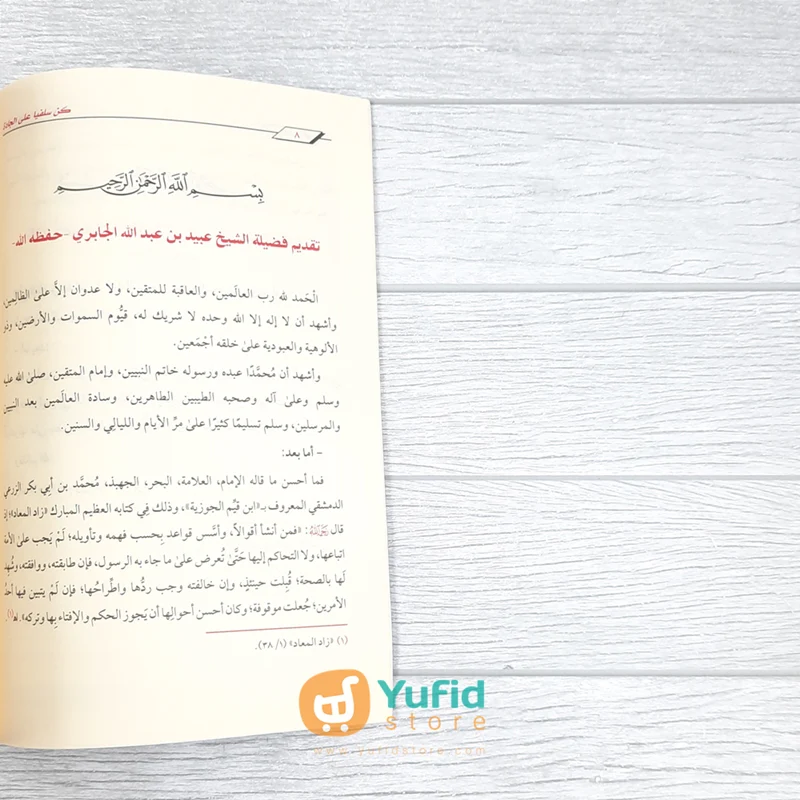 كن سلفيا على الجادة
٨
بِسْمِ اللَّهِ الرَّحْمَٰنِ الرَّحِيمِ
تقديم فضيلة الشيخ عبيد بن عبد الله الجابري -حفظه الله-
الْحَمد لله رب العالَمين، والعاقبة للمتقين، ولا عدوان إلاَّ علىٰ الظالِمِين،
وأشهد أن لا إله إلا الله وحده لا شريك له، قيُّوم السموات والأرضين، وذو
الألوهية والعبودية علىٰ خلقه أجْمَعين.
وأشهد أن مُحمَّدًا عبده ورسوله خاتم النبيين، وإمام المتقين، صلىٰ الله عليه
وسلم وعلىٰ آله وصحبه الطيبين الطاهرين، وسادة العالَمين بعد النبيين
والمرسلين، وسلم تسليمًا كثيرًا علىٰ مرِّ الأيام والليالِي والسنين.
– أما بعد:
فما أحسن ما قاله الإمام، العلامة، البحر، الجهبذ، مُحمَّد بن أبِي بكر الزرعي
الدمشقي المعروف بـ«ابن قيِّم الجوزية»، وذلك فِي كتابه العظيم المبارك «زاد المعاد»؛ إذ
قال رَحِمَهُ اللهُ: «فمن أنشأ أقوالاً، وأسَّس قواعد بِحسب فهمه وتأويله؛ لَمْ يَجب علىٰ الأمة
اتباعها، ولا التحاكم إليها حَتَّىٰ تُعرض علىٰ ما جاء به الرسول، فإن طابقته، ووافقته، وشُهِد
لَها بالصحة؛ قُبِلت حينئذٍ، وإن خالفته وجب ردُّها واطِّراحُها؛ فإن لَمْ يتبين فيها أحدُ
الأمرين؛ جُعلت موقوفة؛ وكان أحسن أحوالِها أن يَجوز الحكم والإفتاء بِها وتركه». اهـ(١).
(١) «زاد المعاد» (١/ ٣٨).
Yufid
store
www.yufidstore.com